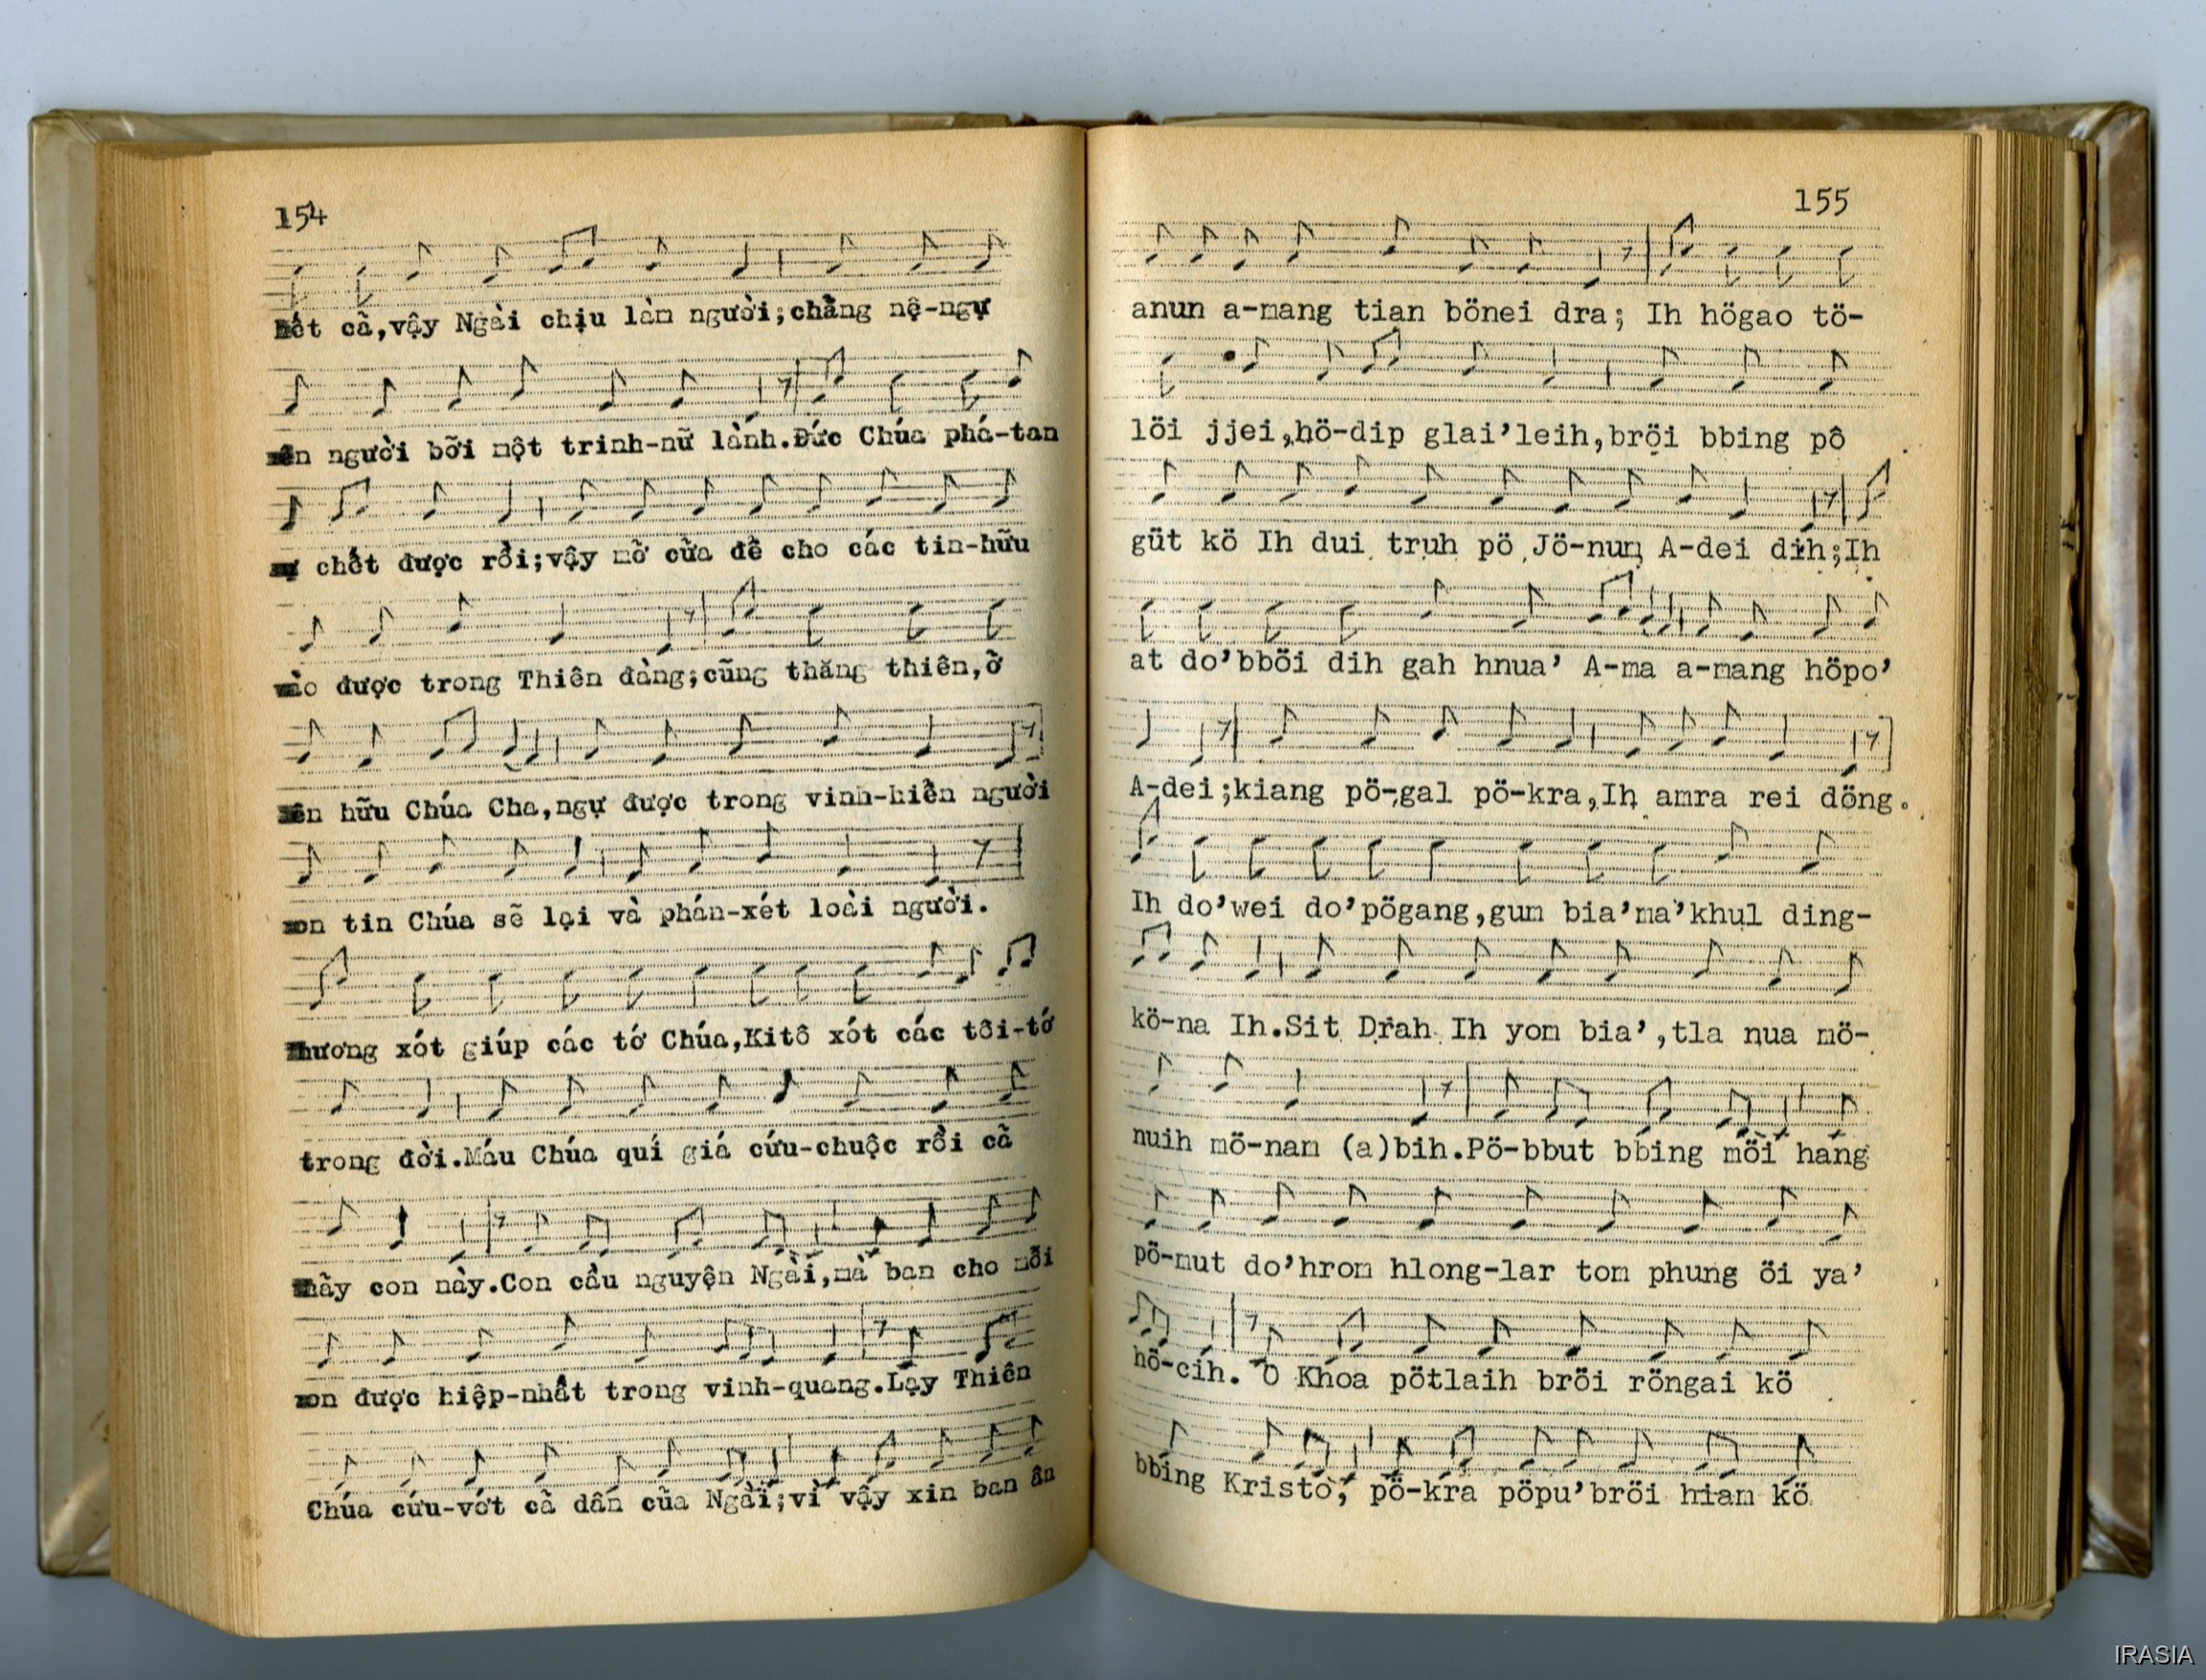 154
hết cả,vậy Ngài chịu làm người;chẳng nệ-ngự
nên người bỡi một trinh-nữ lành.Đức Chúa phá-tan
sự chết được rồi;vậy mở cửa để cho các tín-hữu
vào được trong Thiên đàng;cũng thăng thiên,ở
bên hữu Chúa Cha,ngự được trong vinh-hiển người
con tin Chúa sẽ lại và phán-xét loài người.
Thương xót giúp các tớ Chúa,Kitô xót các tôi-tớ
trong đời.Máu Chúa quí giá cứu-chuộc rồi cả
thảy con này.Con cầu nguyện Ngài,mà ban cho mỗi
con được hiệp-nhất trong vinh-quang.Lạy Thiên
Chúa cứu-vớt cả dân của Ngài;vì vậy xin ban ân
155
anun a-mang tian bönei dra; Ih högao tö-
löi jjei,hö-dip glai'leih,bröi bbing pô
güt kö Ih dui truh pö Jö-nun A-dei dih;Ih
at do'bböi dih gah hnua' A-ma a-mang höpo'
A-dei;kiang pö-gal pö-kra,Ih amra rei döng.
Ih do'wei do'pögang,gum bia'ma'khul ding-
kö-na Ih.Sit Drah Ih yom bia',tla nua mö-
nuih mö-nam (a)bih.Pö-bbut bbing möi hang
pö-mut do'hrom hlong-lar tom phung öi ya'
hö-cih. O Khoa pötlaih bröi röngai kö
bbing Kristo, pö-kra pöpu'bröi hiam kö
IRASIA